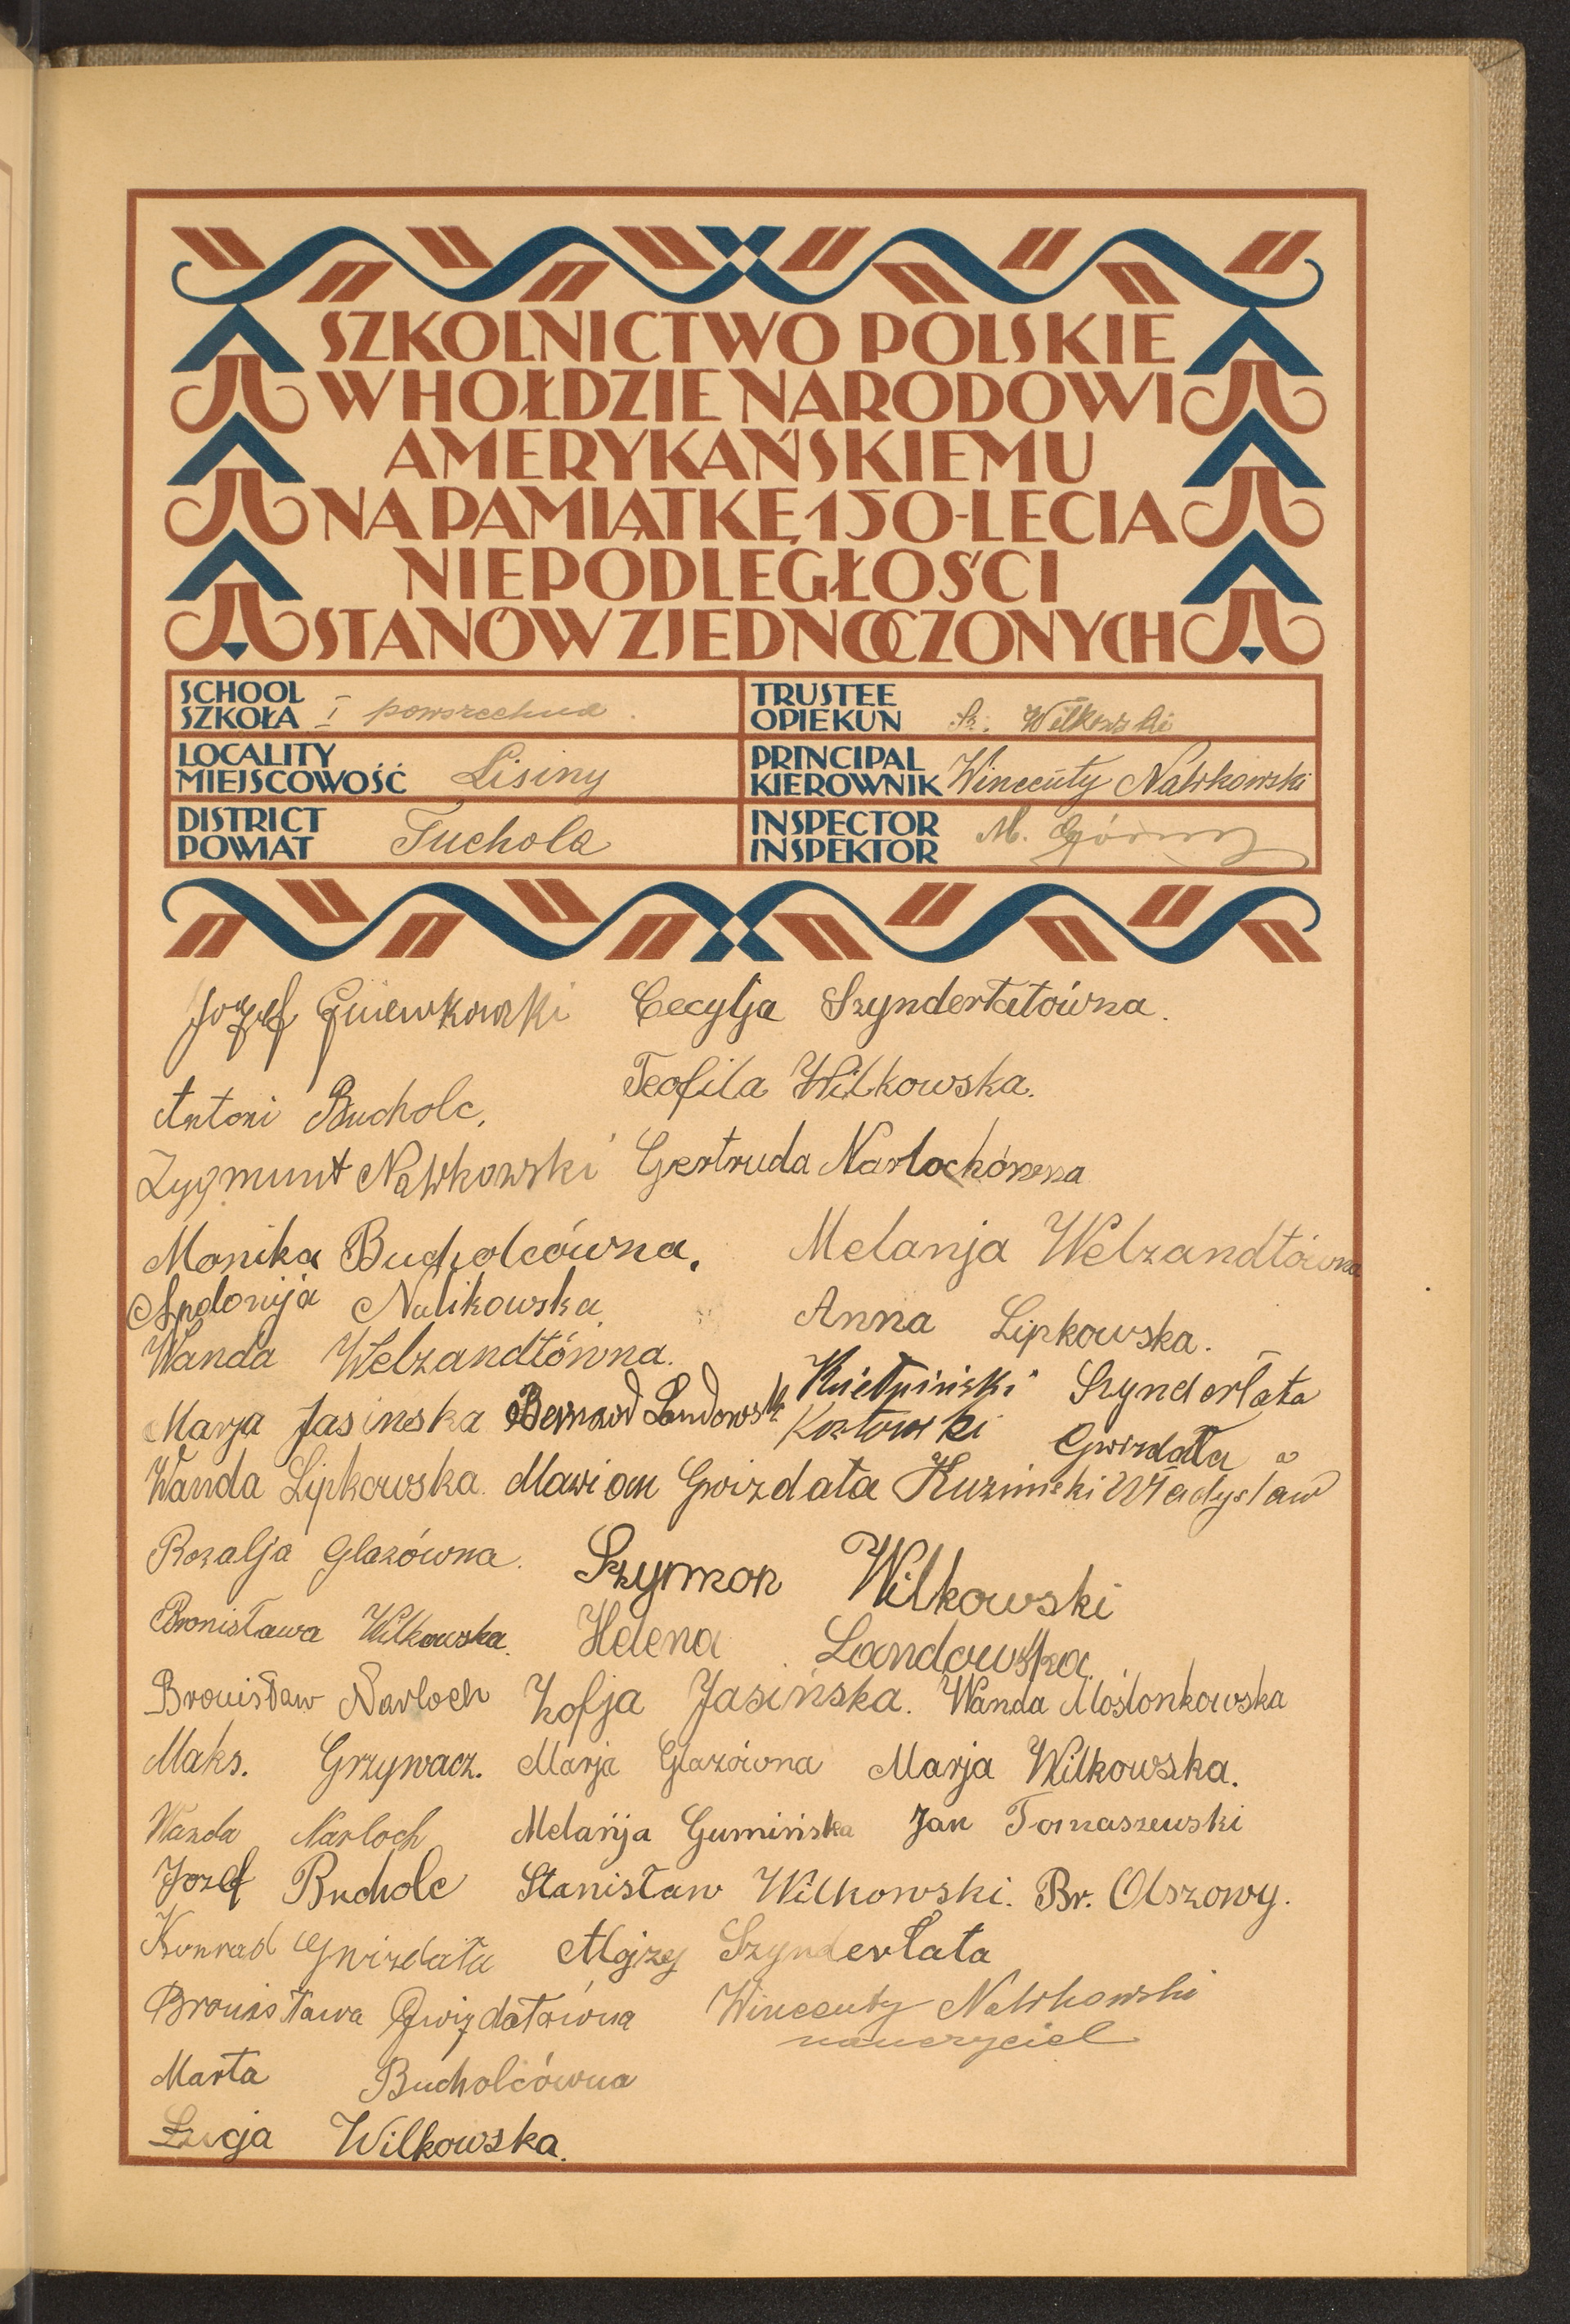 SZKOLNICTWO POLSKIE
W HOŁDZIE NARODOWI
AMERYKAŃSKIEMU
NA PAMIĄTKĘ 150-LECIA
NIEPODLEGŁOŚCI
STANÓW ZJEDNOCZONYCH
SCHOOL
SZKOŁA I powszechna.
TRUSTEE
OPIEKUN Sz. Wilkowski
LOCALITY
MIEJSCOWOŚĆ Lisiny
PRINCIPAL
KIEROWNIK Wincenty Nalikowski
DISTRICT
POWIAT Tuchola
INSPECTOR
INSPEKTOR M. Górny
Jozef Gniewkowski Cecylja Szynderłatówna.
Teofila Wilkowska.
Antoni Bucholc.
Zygmunt Nalikowski Gertruda Narlochówna
Monika Bucholcówna. Melanja Welzandtówna
Apolonija Nalikowska. Anna Lipkowska.
Wanda Welzandtówna.
Marja Jasinska Bernard Landowski Kiełpiński Szynderłata
Kozłowski Gwizdała
Wanda Lipkowska. Marian Gwizdała Kuziński Władysław
Rozalja Glazówna. Szymon Wilkowski
Bronisława Wilkowska. Helena Landowska.
Bronisław Narloch Zofja Jasińska. Wanda Mośionkowska
Maks. Grzywacz. Marja Glazówna Marja Wilkowska.
Wanda Narloch Melanija Gumińska Jan Tomaszewski
Jozef Bucholc Stanisław Wilkowski. Br. Olszowy.
Konrad Gwizdała Alojzy Szynderłata
Bronisława Gwizdałówna Wincenty Nalikowski
nauczyciel
Marta Bucholcówna
Łucja Wilkowska.